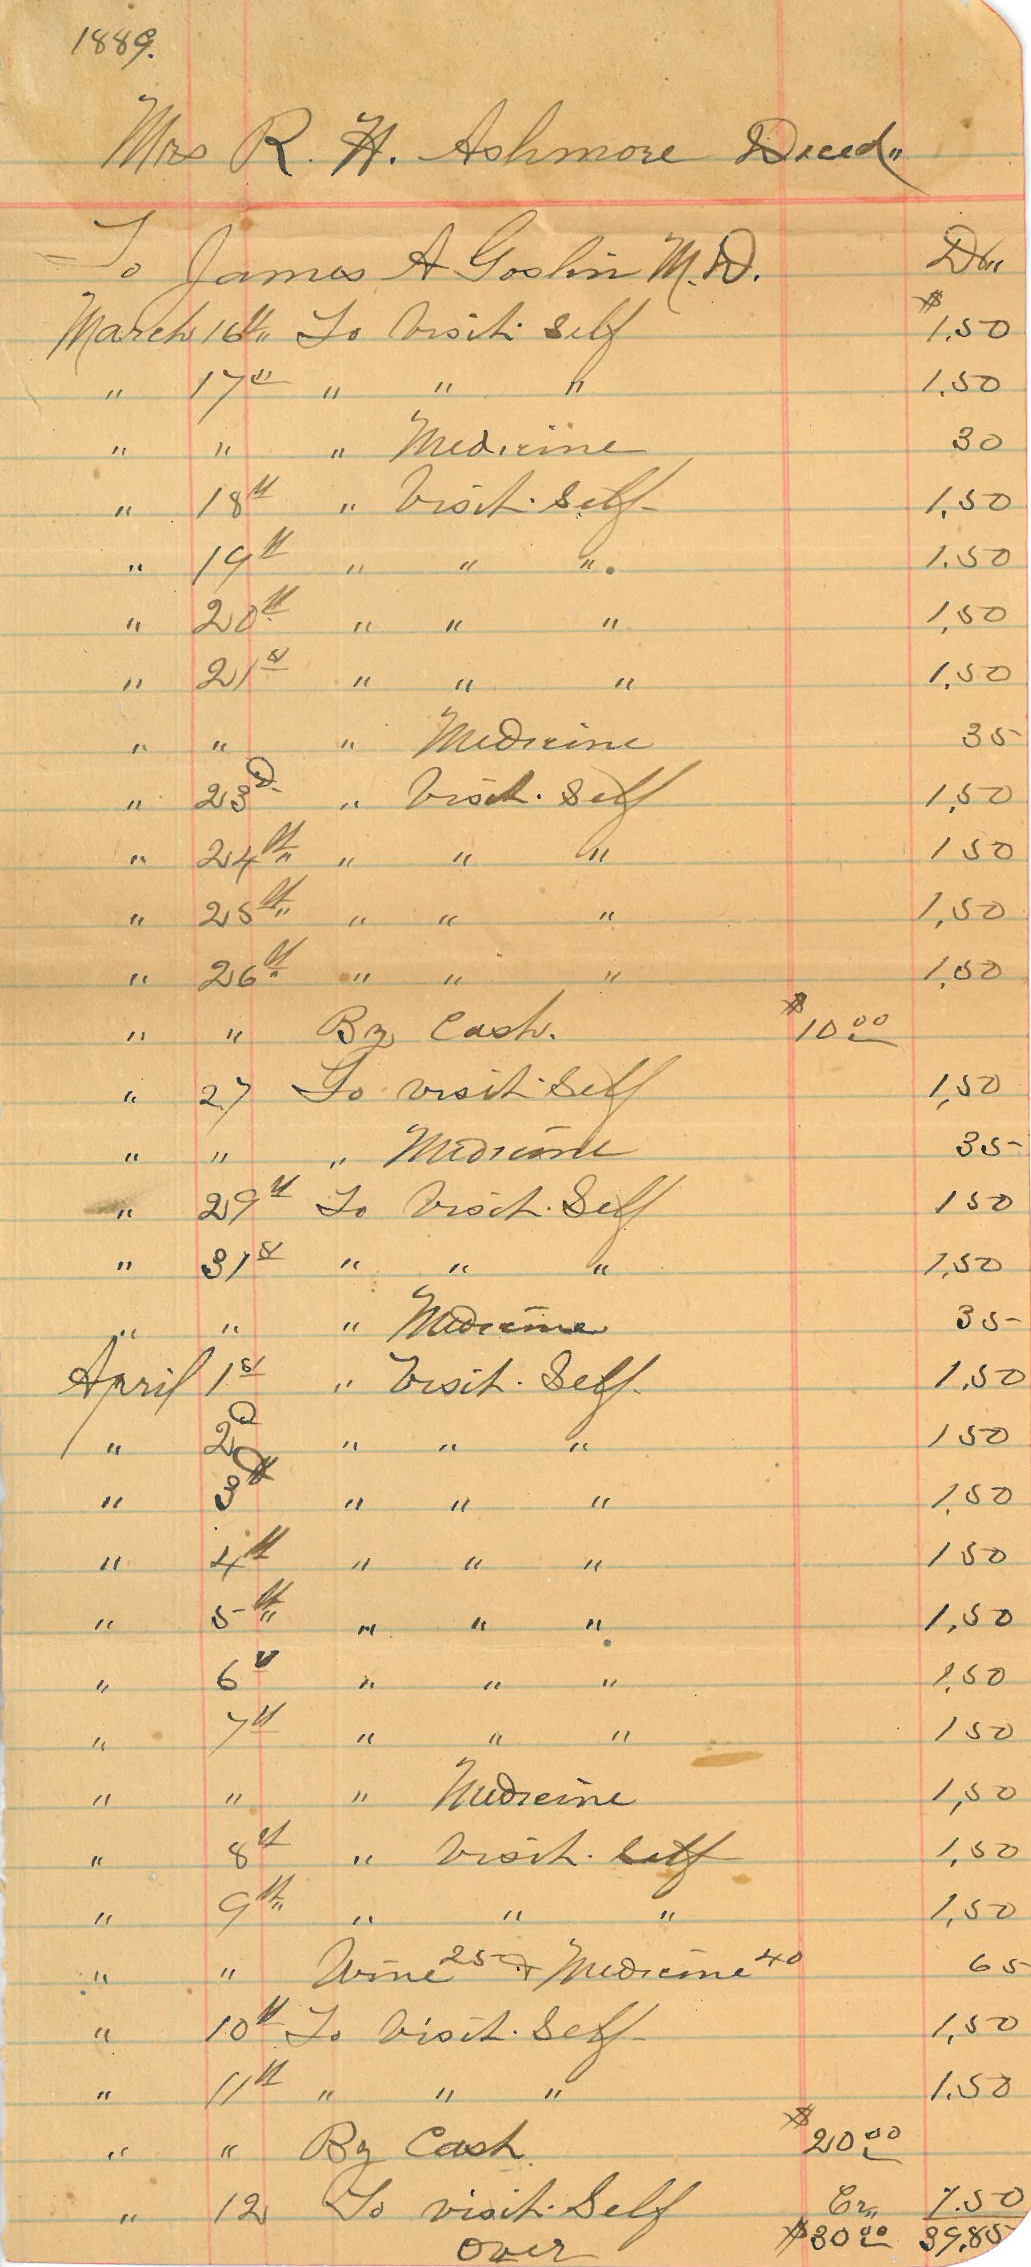 1889.
Mrs R. H. Ashmore Deced"
To James A Goslin M.D. Dr"
March 16th" To Visit. Self $1.50
" 17th " " " 1.50
" " " Medicine 30
" 18th " Visit. Self 1,50
" 19th " " ". 1.50
" 20th " " " 1,50
" 21st " " " 1,50
" " " Medicine 35
" 23D " Visit. Self 1,50
" 24th" " " " 1 50
" 25th" " " " 1,50
" 26th" " " " 1,50
" " By Cash. $10 00
" 27 To visit. Self 1,50
" " " Medicine 35
" 29th To Visit. Self 1 50
" 31st " " " 1,50
" " " Medicine 35
April 1st " Visit. Self. 1,50
" 2D " " " 1 50
" 3D " " " 1,50
" 4th " " " 1 50
" 5th" " " " 1,50
" 6th " " " 1,50
" 7th " " " 1 50
" " " Medicine 1,50
" 8th " Visit. Self 1,50
" 9th" " " " 1,50
" " Wine 25 & Medicine 40 65
" 10th To Visit. Self 1,50
" 11th " " " 1.50
" " By Cash $20 00
" 12 To visit. Self Cr" 1.50
Over $30 00 39,85